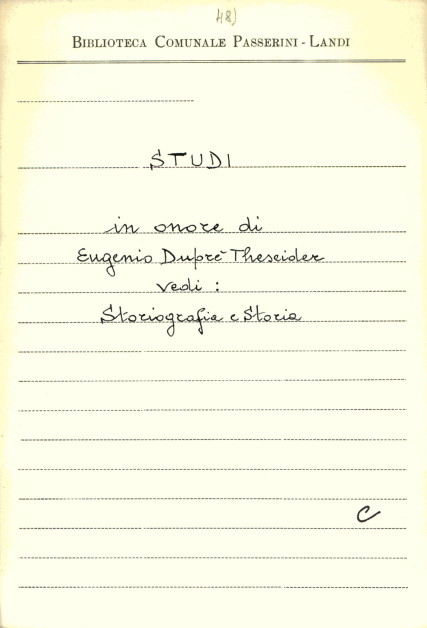 48)
BIBLIOTECA COMUNALE PASSERINI - LANDI
STUDI
in onore di
Eugenio Duprè Theseider
vedi :
Storiografia e Storia
C